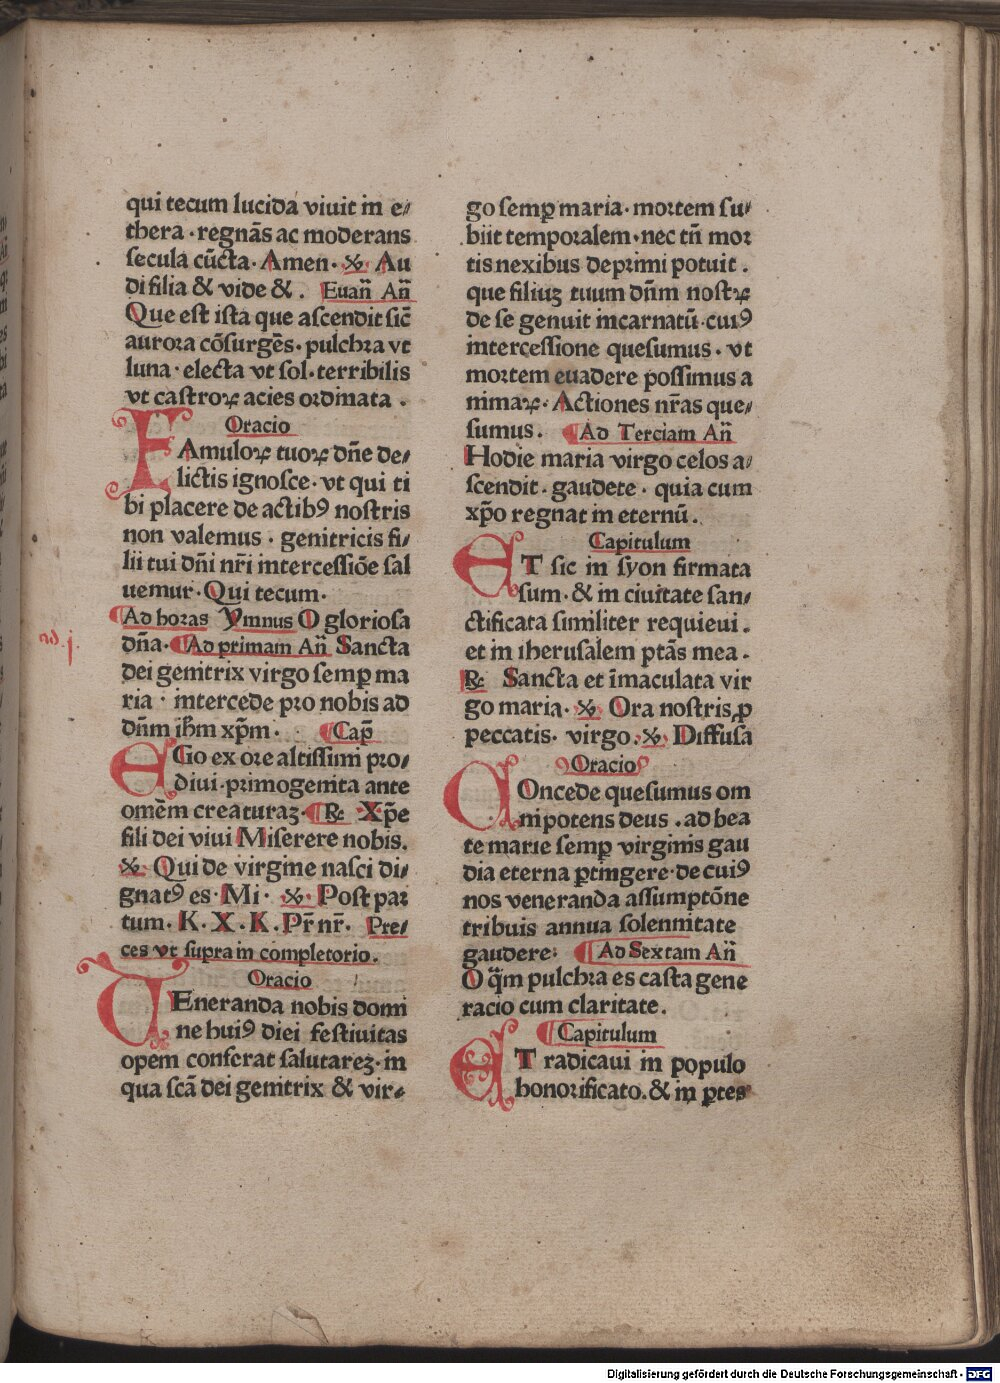 qui tecum lucida viuit in e⸗
thera · regnās ac moderans
secula cūcta. Amen. ℣. Au
di filia & vide &. Euan̄ An̄
Que est ista que ascendit sic̄
aurora cōsurgēs. pulchra vt
luna · electa vt sol. terribilis
vt castroꝝ acies ordinata .
Oracio
FAmuloꝝ tuoꝝ dn̄e de⸗
lictis ignosce. vt qui ti
bi placere de actibꝰ nostris
non valemus . genitricis fi⸗
lii tui dn̄i nr̄i intercessiōe sal
uemur. Qui tecum.
Ad horas Ymnus O gloriosa
dn̄a. Ad primam An̄ Sancta
dei genitrix virgo semꝑ ma
ria · intercede pro nobis ad
dn̄m ih̄m xp̄m. Cap̄
EGo ex ore altissimi pro⸗
diui. primogenita ante
omēm creaturaꝫ. ℞. Xp̄e
fili dei viui Miserere nobis.
℣. Qui de virgine nasci di⸗
gnatꝰ es. Mi. ℣. Post par
tum. K. X. K. Pr̄ nr̄. Pre⸗
ces vt supra in completorio.
Oracio
VEneranda nobis domi
ne huiꝰ diei festiuitas
opem conferat salutareꝫ. in
qua sc̄a dei genitrix & vir⸗
go semꝑ maria. mortem su⸗
biit temporalem. nec tn̄ mor
tis nexibus deprimi potuit .
que filiuꝫ tuum dn̄m nostꝝ
de se genuit incarnatū. cuiꝰ
intercessione quesumus. vt
mortem euadere possimus a
nimaꝝ. Actiones nr̄as que⸗
sumus. Ad Terciam An̄
Hodie maria virgo celos a⸗
scendit. gaudete. quia cum
xp̄o regnat in eternū.
Capitulum
ET sic in syon firmata
sum. & in ciuitate san⸗
ctificata similiter requieui.
et in iherusalem ptās mea.
℞. Sancta et īmaculata vir
go maria. ℣. Ora nostris ꝓ
peccatis. virgo. ℣. Diffusa
Oracio
COncede quesumus om
nipotens deus . ad bea
te marie semꝑ virginis gau
dia eterna ꝑtingere. de cuiꝰ
nos veneranda assumptōne
tribuis annua solennitate
gaudere. Ad Sextam An̄
O q̄m pulchra es casta gene
racio cum claritate.
Capitulum
ET radicaui in populo
honorificato. & in ꝑtes
Digitalisierung gefördert durch die Deutsche Forschungsgemeinschaft - DFG